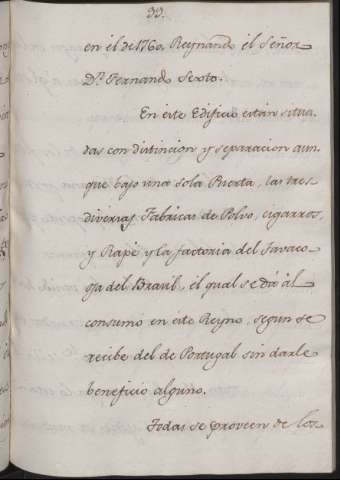 99.
en él de 1760. Reynando él Señor
Dn. Fernando Sexto.
En éste Edificio están situa-
das con distincion y separacion aun-
que bajo una sola Puerta, las tres
diversas Fabricas de Polvo, cigarros,
y Rapé y la factoria del
del Brasil, él qual se dá ál
consumo en éste Reyno, segun se
recibe del de Portugal sin darle
beneficio alguno.
Todas se proveen de los